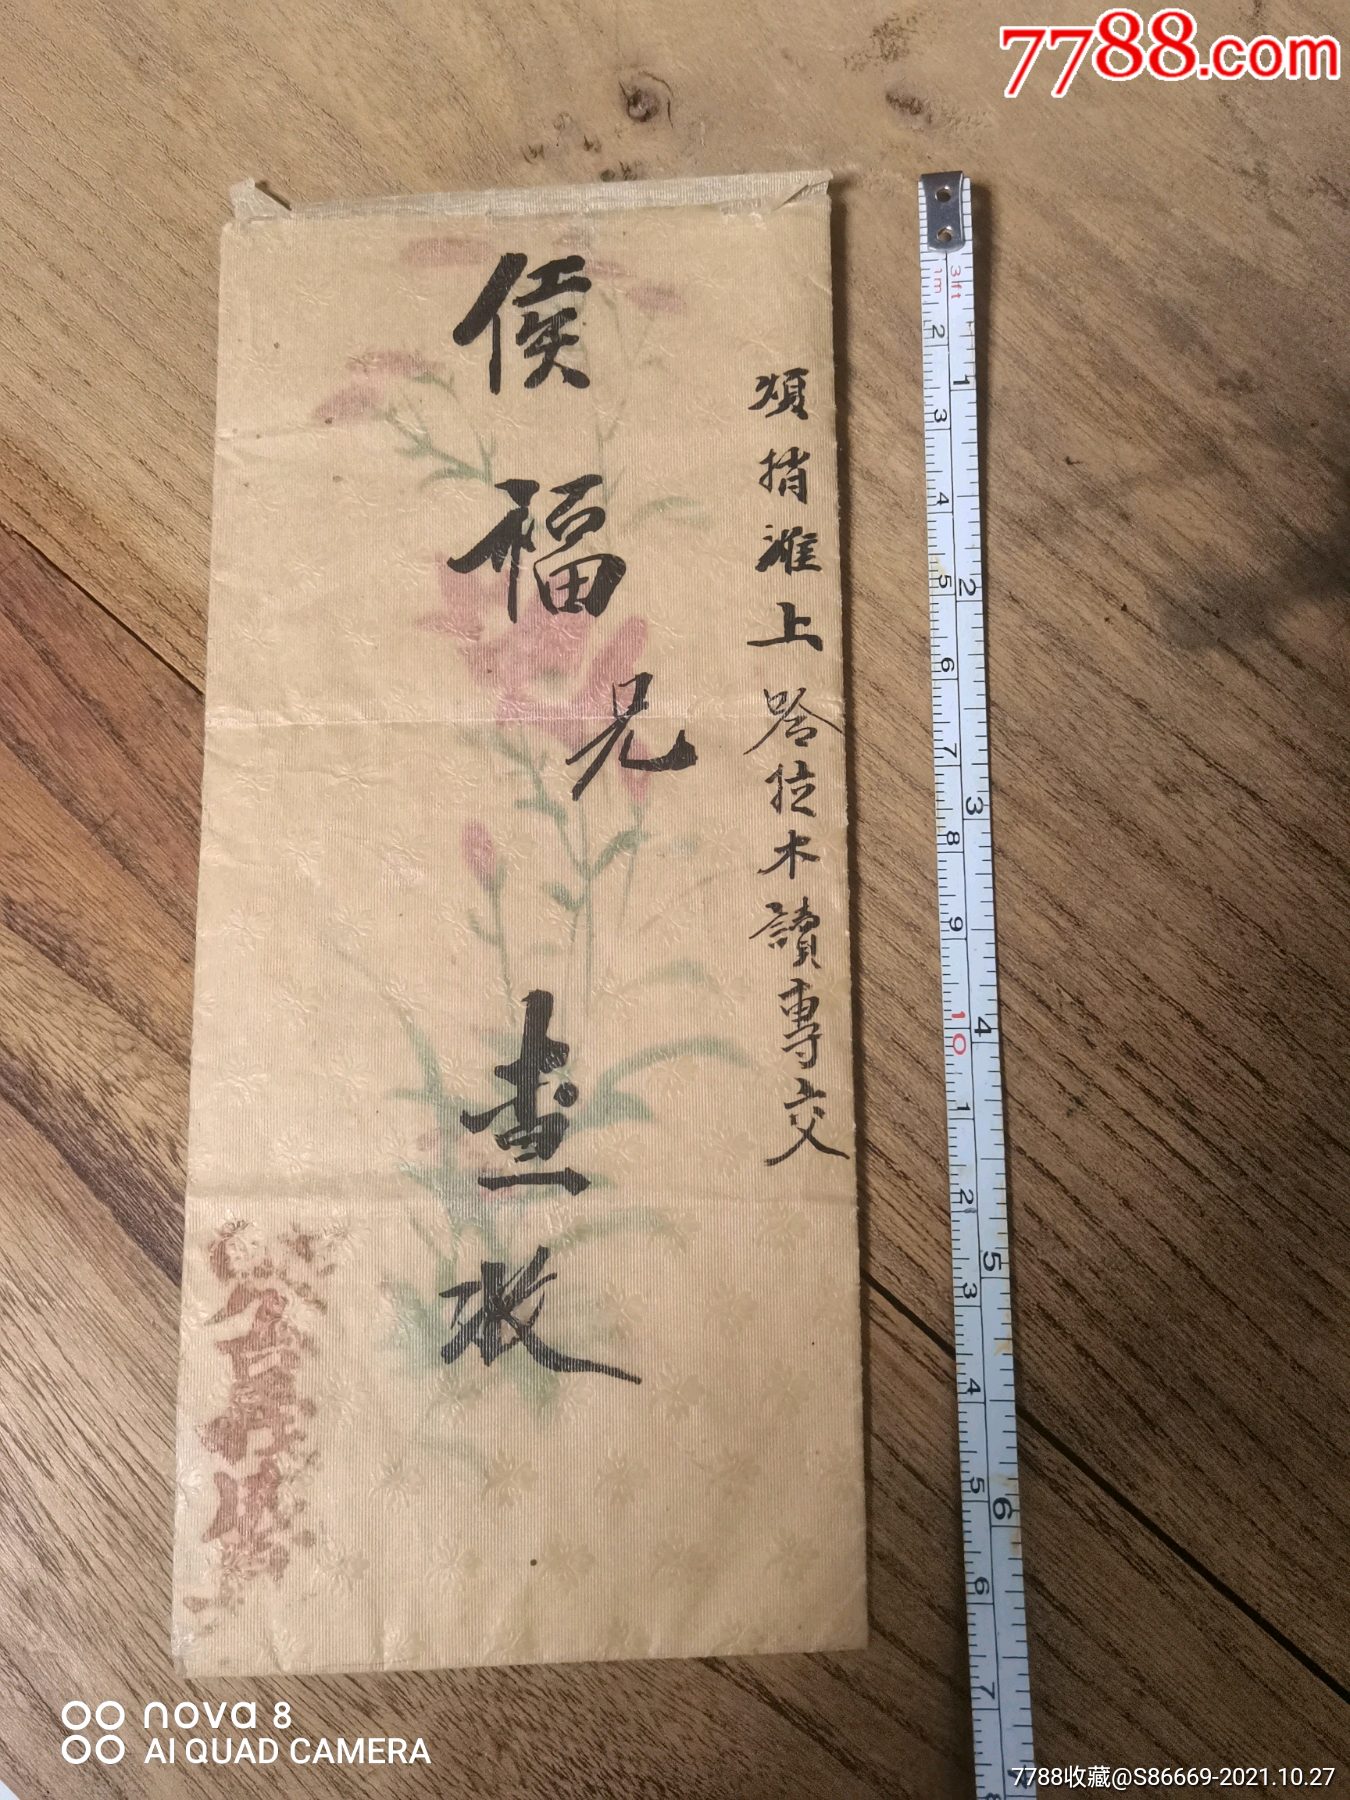 7788.com
煩捎灘上哈拉木讀專交
侯福兄 查收
3ft
1m
1
2
3
4
5
6
2
3
4
5
6
7
8
9
10
1
2
3
4
5
6
7
nova 8
AI QUAD CAMERA
7788收藏@S86669-2021.10.27